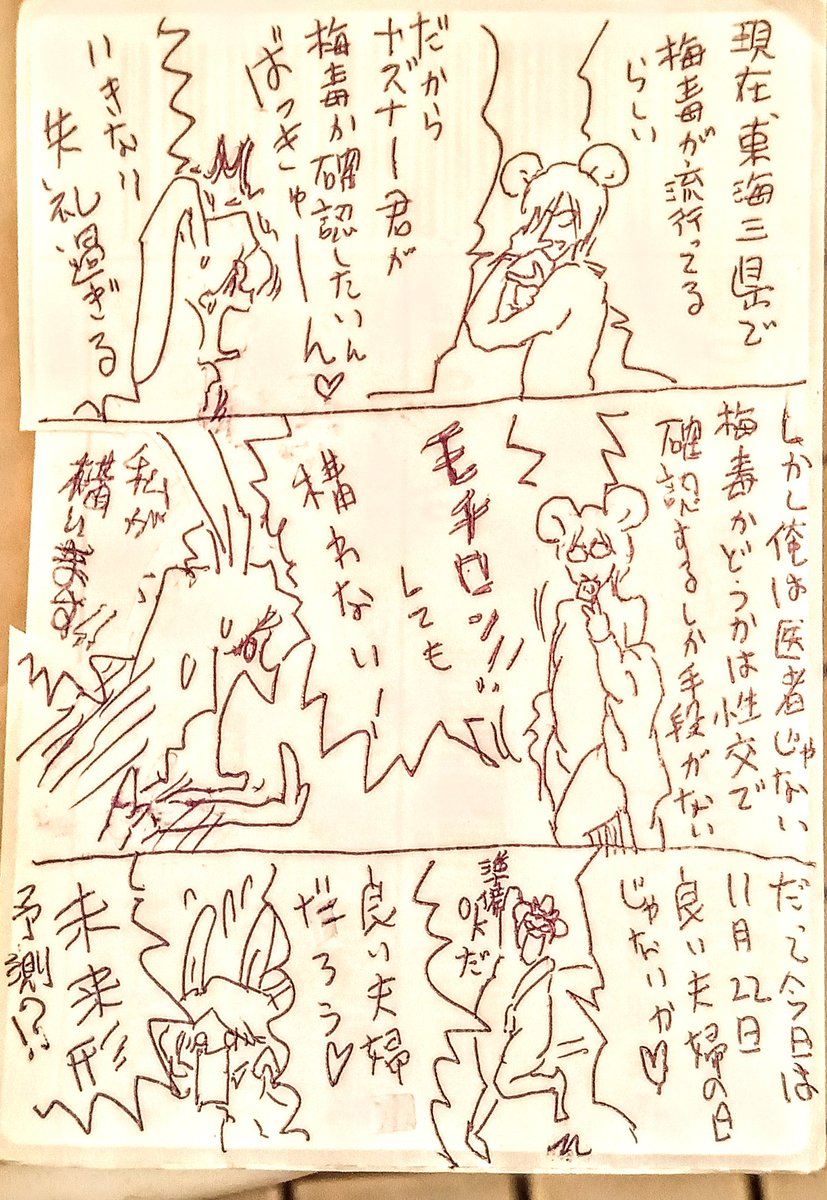 現在、東海三県で
梅毒が流行ってる
らしい
だから
ヤズナー君が
梅毒か確認したいん
ばっきゅーん♡
いきなり
失礼過ぎる
しかし俺は医者じゃない
梅毒かどうかは性交で
確認するしか手段がない
モチロン!!
しても
構わない!
私が
構います!!
だって今日は
11月22日
良い夫婦の日
じゃないか♡
良い夫婦
だろう♡
未来形
予測!?